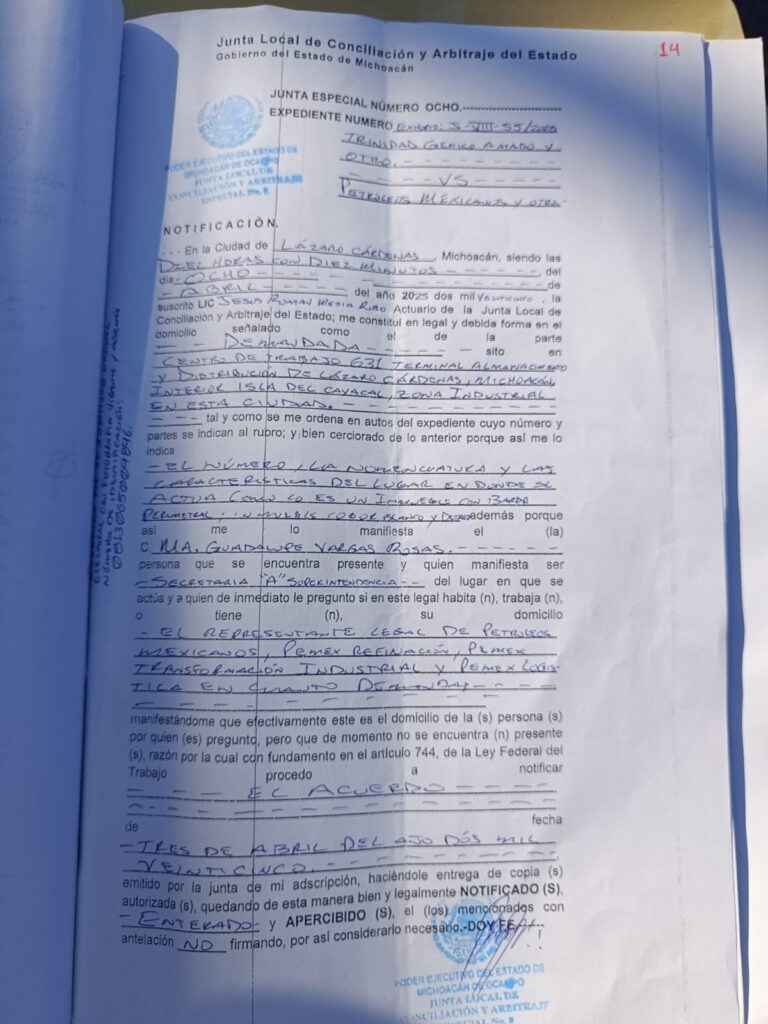 Junta Local de Conciliación y Arbitraje del Estado
Gobierno del Estado de Michoacán
14
JUNTA ESPECIAL NÚMERO OCHO.
EXPEDIENTE NUMERO Exhorto: S-VIII-55/2025
TRINIDAD GENICO AMADO Y
OTRO.
VS
PETROLEOS MEXICANOS Y OTRO.
PODER EJECUTIVO DEL ESTADO DE
MICHOACÁN DE OCAMPO
JUNTA LOCAL DE
CONCILIACIÓN Y ARBITRAJE
ESPECIAL No. 8
NOTIFICACIÓN.
- - - En la Ciudad de LÁZARO CÁRDENAS, Michoacán, siendo las
DIEZ HORAS CON DIEZ MINUTOS, del
día OCHO de
ABRIL del año 2025 dos mil VEINTICINCO, la
suscrito LIC JESUS ROMAN Actuario de la Junta Local de
Conciliación y Arbitraje del Estado; me constituí en legal y debida forma en el
domicilio señalado como el de la parte
DEMANDADA sito en
CENTRO DE TRABAJO 631 TERMINAL ALMANACIMIENTO
Y DISTRIBUCIÓN DE LÁZARO CÁRDENAS, MICHOACÁN,
INTERIOR ISLA DEL CAYACAL, ZONA INDUSTRIAL
EN ESTA CIUDAD.
- - - - tal y como se me ordena en autos del expediente cuyo número y
partes se indican al rubro; y bien cerciorado de lo anterior porque así me lo
indica
EL NÚMERO, LA NOMENCLATURA Y LAS
CARACTERÍSTICAS DEL LUGAR EN DONDE SE
ACTÚA COMO LO ES UN INMUEBLE CON BARDA
PERIMETRAL; INMUEBLE COLOR BLANCO Y además porque
así me lo manifiesta el (la)
C. MA. GUADALUPE VARGAS ROSAS.
persona que se encuentra presente y quien manifiesta ser
SECRETARIA "A" SUPERINTENDENCIA del lugar en que se
actúa y a quien de inmediato le pregunto si en este legal habita (n), trabaja (n),
o tiene (n), su domicilio
EL REPRESENTANTE LEGAL DE PETROLEOS
MEXICANOS, PEMEX REFINACIÓN, PEMEX
TRANSFORMACIÓN INDUSTRIAL Y PEMEX LOGIS-
TICA EN CUANTO
manifestándome que efectivamente este es el domicilio de la (s) persona (s)
por quien (es) pregunto, pero que de momento no se encuentra (n) presente
(s), razón por la cual con fundamento en el artículo 744, de la Ley Federal del
Trabajo procedo a notificar
EL ACUERDO
de fecha
TRES DE ABRIL DEL AÑO DOS MIL
VEINTICINCO.
emitido por la junta de mi adscripción, haciéndole entrega de copia (s)
autorizada (s), quedando de esta manera bien y legalmente NOTIFICADO (S),
ENTERADO y APERCIBIDO (S), el (los) mencionados con
antelación NO firmando, por así considerarlo necesario.-DOY FE.-
PODER EJECUTIVO DEL ESTADO DE
MICHOACÁN DE OCAMPO
JUNTA LOCAL DE
CONCILIACIÓN Y ARBITRAJE
ESPECIAL No. 8
ELECTORAL CON FOTOGRAFIA VIGENTE Y
NÚMERO DE IDENTIFICACIÓN: